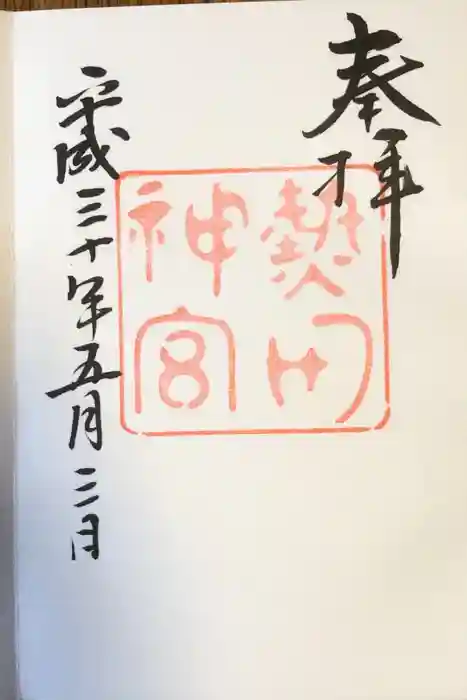 奉拝
熱田
神宮
平成三十年五月三日